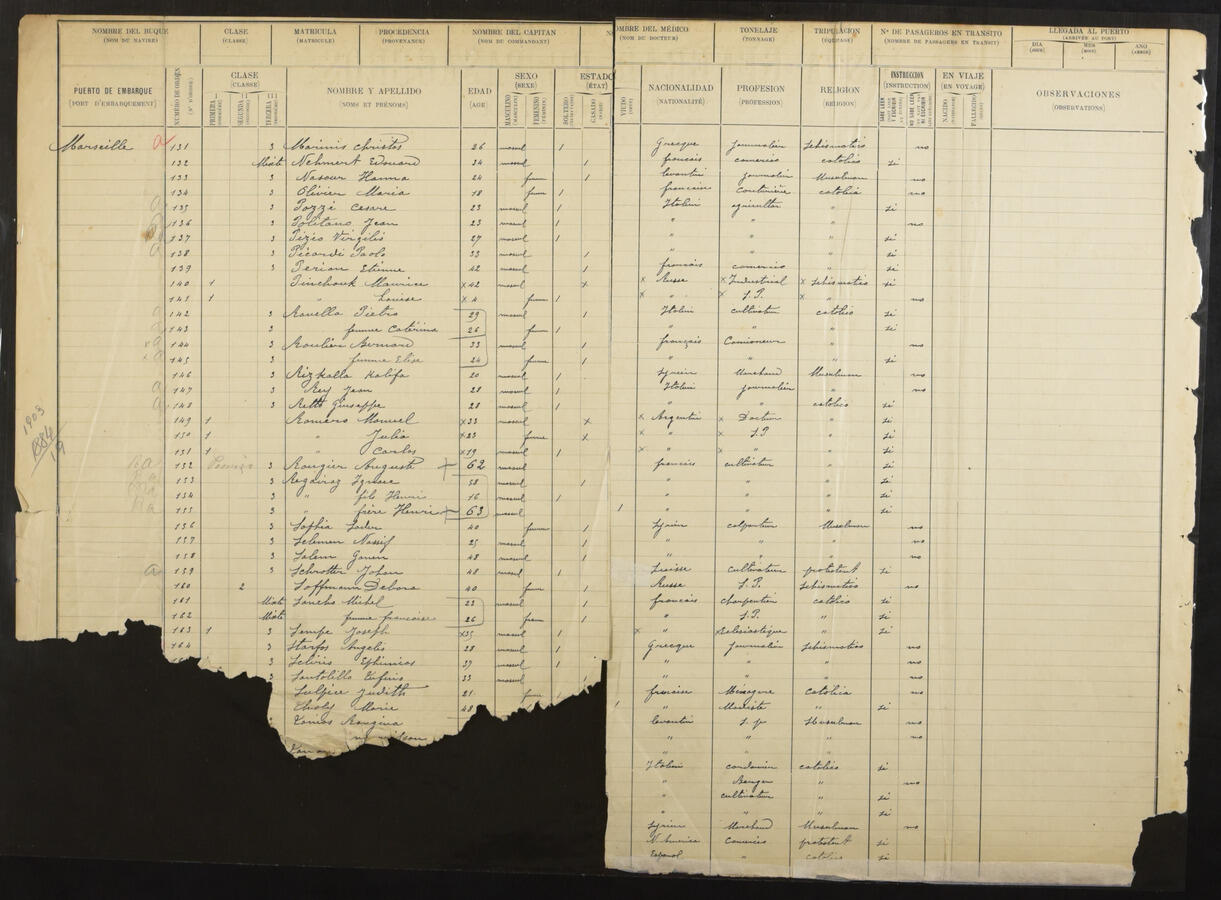 NOMBRE DEL BUQUE CLASE MATRICULA PROCEDENCIA NOMBRE DEL CAPITAN
(NOM DU NAVIRE) (CLASSE) (MATRICULE) (PROVENANCE) (NOM DU COMMANDANT)
OMBRE DEL MÉDICO TONELAJE TRIPULACIÓN Nº DE PASAGEROS EN TRANSITO LLEGADA AL PUERTO
(NOM DU DOCTEUR) (TONNAGE) (ÉQUIPAGE) (NOMBRE DE PASSAGERS EN TRANSIT) (ARRIVÉE AU PORT)
DIA MES AÑO
(JOUR) (MOIS) (ANNÉE)
PUERTO DE EMBARQUE NÚMERO DE ORDEN CLASE NOMBRE Y APELLIDO EDAD SEXO ESTADO
(PORT D'EMBARQUEMENT) (Nº D'ORDRE) (CLASSE) (NOMS ET PRÉNOMS) (AGE) (SEXE) (ÉTAT)
PRIMERA SEGUNDA TERCERA MASCULINO FEMENINO SOLTERO CASADO
VIUDO NACIONALIDAD PROFESION RELIGION INSTRUCCION EN VIAJE OBSERVACIONES
(NATIONALITÉ) (PROFESSION) (RELIGION) (INSTRUCTION) (EN VOYAGE) (OBSERVATIONS)
SABE LEER Y ESCRIBIR NO SABE LEER NI ESCRIBIR NACIDO FALLECIDO
Marseille a 131 3 Marinis Christos 26 mascul 1 Grecque Journalier schismatics no
132 Mixte Nehmert Edouard 34 mascul 1 francais comercio catolico si
133 3 Nasour Hanna 24 femm 1 levantin Journalier Musulman no
134 3 Olivier Maria 18 femm 1 francaise Couturière catolica no
135 3 Pozzi Cesare 23 mascul 1 Italien agriculteur " si
136 3 Politano Jean 23 mascul 1 " " " no
137 3 Pizio Virgilio 27 mascul 1 " " " si
138 3 Picordi Paolo 33 mascul 1 " " " si
139 3 Perion Etienne 42 mascul 1 francais comercio " si
140 1 Pinchouk Maurice x 42 mascul x x Russe x Industrial x schismatics si
141 1 " Louise x 4 femm 1 x " x S.P. x " no
142 3 Ravello Pietro 29 mascul 1 Italien cultivateur catolico si
143 3 femme Catérina 26 femm 1 " " " si
144 3 Roulier Bernard 33 mascul 1 français Camioneur " no
145 3 femme Elise 24 femme 1 " " " si
146 3 Rizkalla Kalifa 20 mascul 1 Syrien Marchand Musulman no
147 3 Rey Jean 28 mascul 1 Italien journalier " no
148 3 Retto Giuseppe 28 mascul 1 " " catolico si
149 1 Romero Manuel x 33 mascul x x Argentin x Docteur " si
150 1 " Julia x 23 femme x x " x S.P " si
151 1 " Carlos x 19 mascul 1 x " x " " si
152 3 Rougier Auguste + 62 mascul francais cultivateur " si
153 3 Regairaz Ignace 58 mascul 1 " " " si
154 3 " fils Henri 16 mascul 1 " " " si
155 3 " frère Henri + 63 mascul 1 " " " si
156 3 Sophia Sader 40 femme 1 Syrien colporteur Musulman no
157 3 Selemen Nassif 25 mascul 1 " " " no
158 3 Salem Ganem 48 mascul 1 " " " no
a 159 3 Schrotter Johan 48 mascul 1 Suisse cultivateur protestant si
160 2 Soffmann Debora 40 femm 1 Russe S.P. schismatics no
161 Mixte Sancho Michel 23 mascul 1 francais charpentier catolico si
162 Mixte femme francoise 26 femm 1 " S.P. " si
163 1 3 Sempe Joseph x 35 mascul 1 x " x Eclesiastique " si
164 3 Starfos Angelis 28 mascul 1 Grecque Journalier schismatics no
3 Scliris Ephimios 37 mascul 1 " " " no
3 Santolillo Eufinio 33 mascul " " " no
Sulpice Judith 21 femm francaise Ménagere catolica no
Thioly Marie 48 1 " Modiste " si
Tanios Rougina levantin S.p Musulman no
" " " no
" " "
Italien cordonier catolico si
" Berger " no
" cultivateur " si
" " " si
Syrien Marchand Musulman no
N America Comercio protestant si
Español " catolico si
1903
1884
19